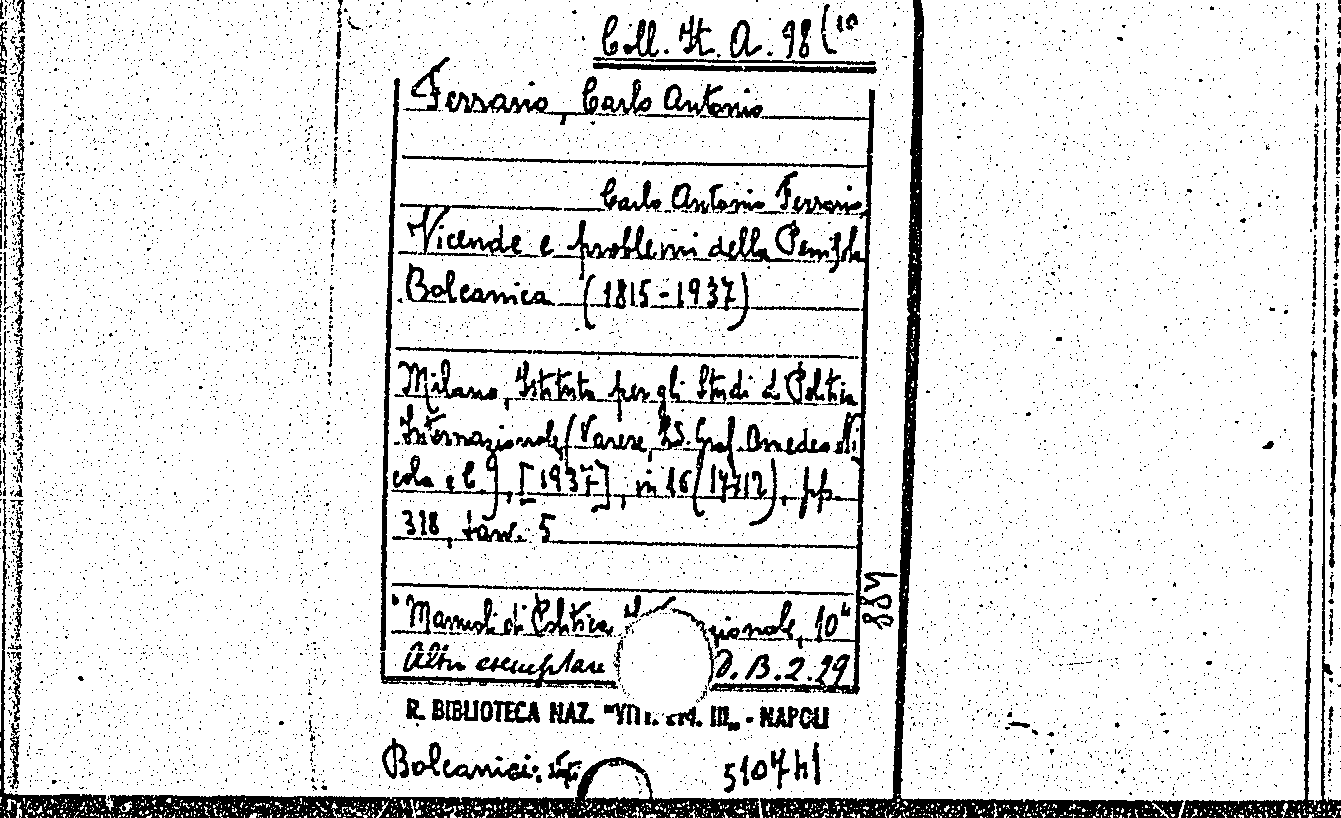 Coll. It. A. 98 (10
Ferrario, Carlo Antonio
Carlo Antonio Ferrario
Vicende e problemi della Penisola
Balcanica (1815-1937)
Milano, Istituto per gli Studi di Politica
Internazionale (Varese, Graf. Amedeo Ni
cola e C.), [1937], in 16 (17x12), pp.
318, tav. 5
"Manuali di Politica zionale, 10"
Altro esemplare D. B. 2. 29
R. BIBLIOTECA NAZ. "VITT. EM. III" - NAPOLI
Balcanici: